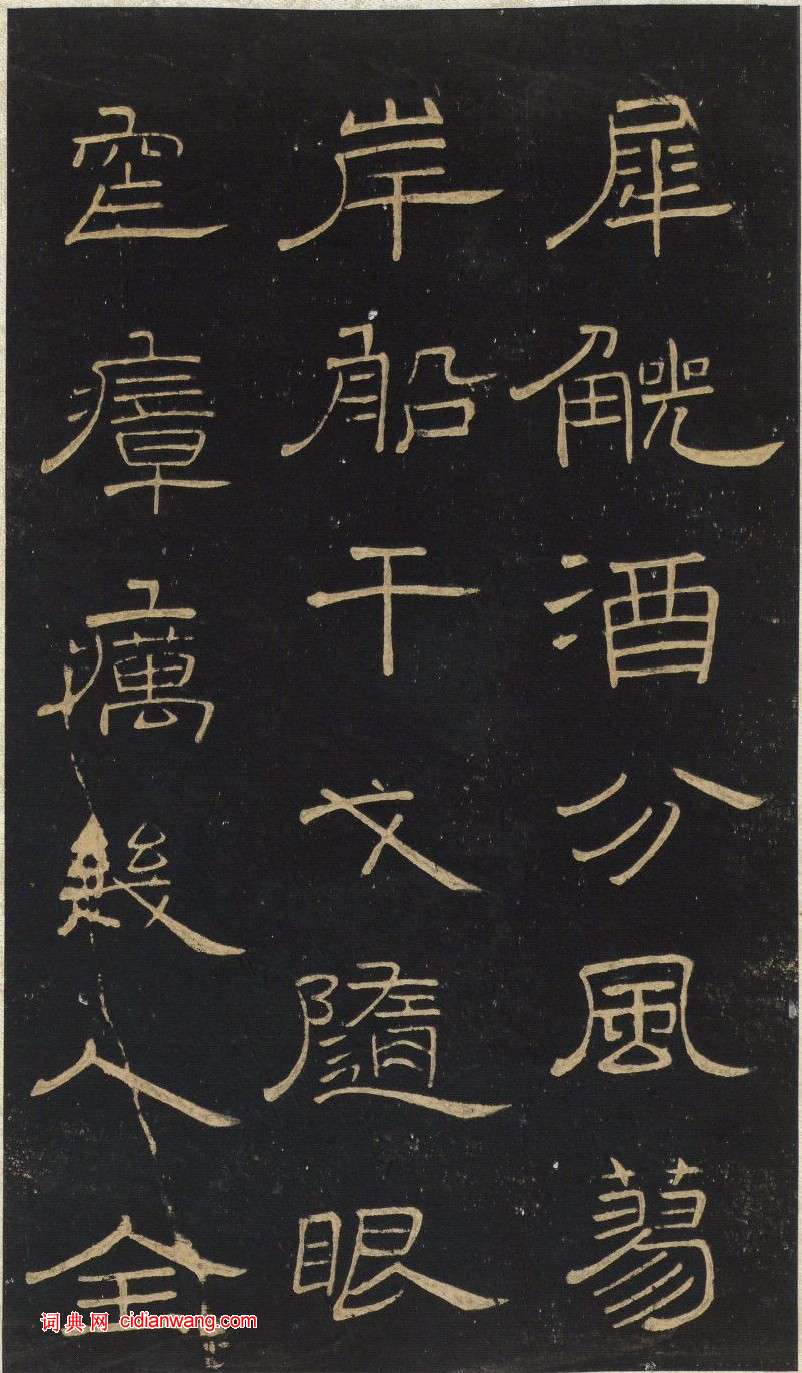 犀觥酒分風蕩
岸船干戈隨眼
空瘴癘幾人全
词典网 cidianwang.com